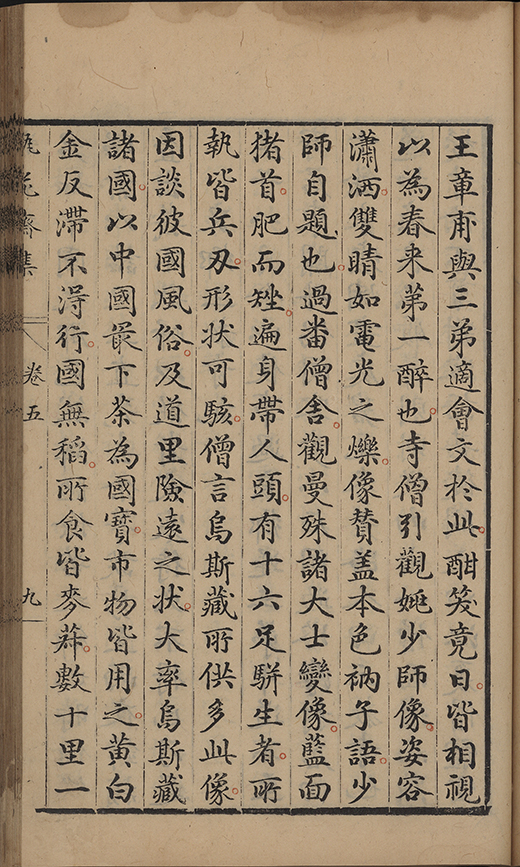 王章甫與三弟適會文於此酣笑竟日皆相視
以為春來第一醉也寺僧引觀姚少師像姿容
瀟洒雙睛如電光之爍像贊盖本色衲子語少
師自題也過番僧舍觀曼殊諸大士變像藍面
猪首肥而矬遍身帶人頭有十六足駢生者所
執皆兵刃形狀可駭僧言烏斯藏所供多此像
因談彼國風俗及道里險遠之狀大率烏斯藏
諸國以中國最下茶為國寶市物皆用之黄白
金反滯不得行國無稻所食皆麥蕎數十里一
卷五
九